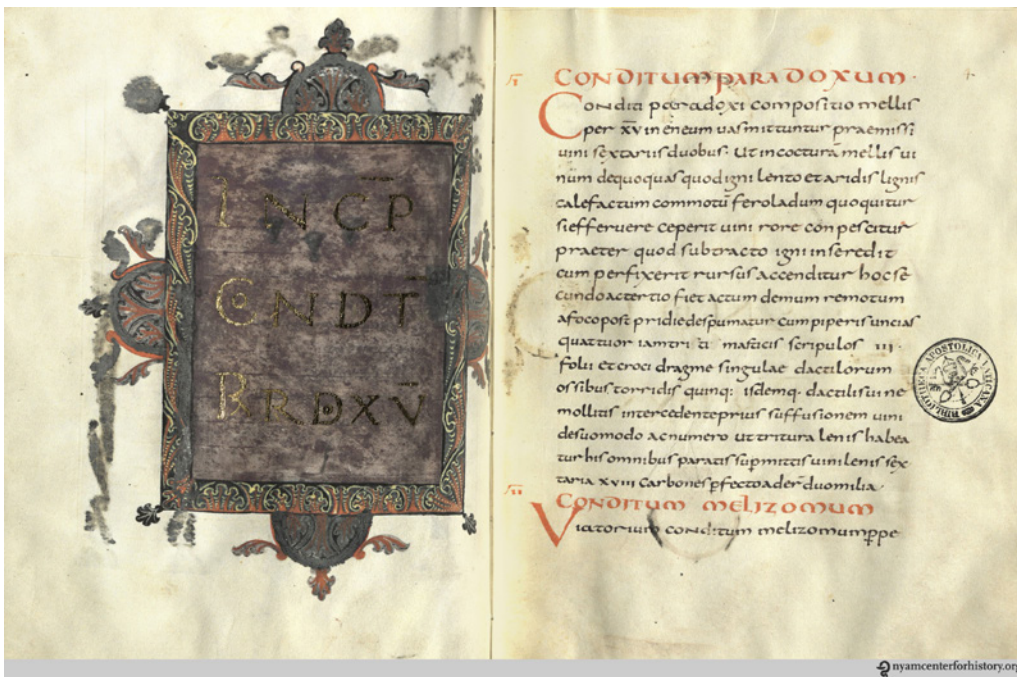 INCP̄
CONDT̄
PRDOXV̄
I CONDITUM PARADOXUM
Conditi paradoxi compositio mellis
per x̄v in eneum uas mittuntur praemissi
uini sextariis duobus. Ut in cocturā mellis ui
num dequoquas quod igni lento et aridis lignis
calefactum commotū ferola dum quoquitur
si efferuere ceperit uini rore conpescitur
praeter quod subtracto igni in se redit
cum perfixerit rursus accenditur hoc se
cundo ac tertio fiet ac tum demum remotum
a foco post pridie despumatur cum piperis uncias
quattuor iam tri ti masticis scripulos III.
folii et croci dragme singulae dactilorum
ossibus torridis quinq: isdemq. dactilis uine
mollitis intercedente prius suffusionem uini
de suo modo ac numero ut tritura lenis habea
tur his omnibus paratis sup mittis uini lenis sex
taria XVIII Carbones pfecto ader duomilia.
II CONDITUM MELIZOMUM
Viatorium conditum melizomum ppe
BIBLIOTHECA APOSTOLICA VATICANA
nyamcenterforhistory.org